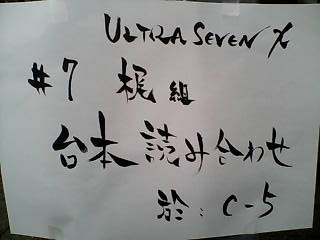 ULTRA SEVEN X
#7 梶組
台本読み合わせ
於：C-5